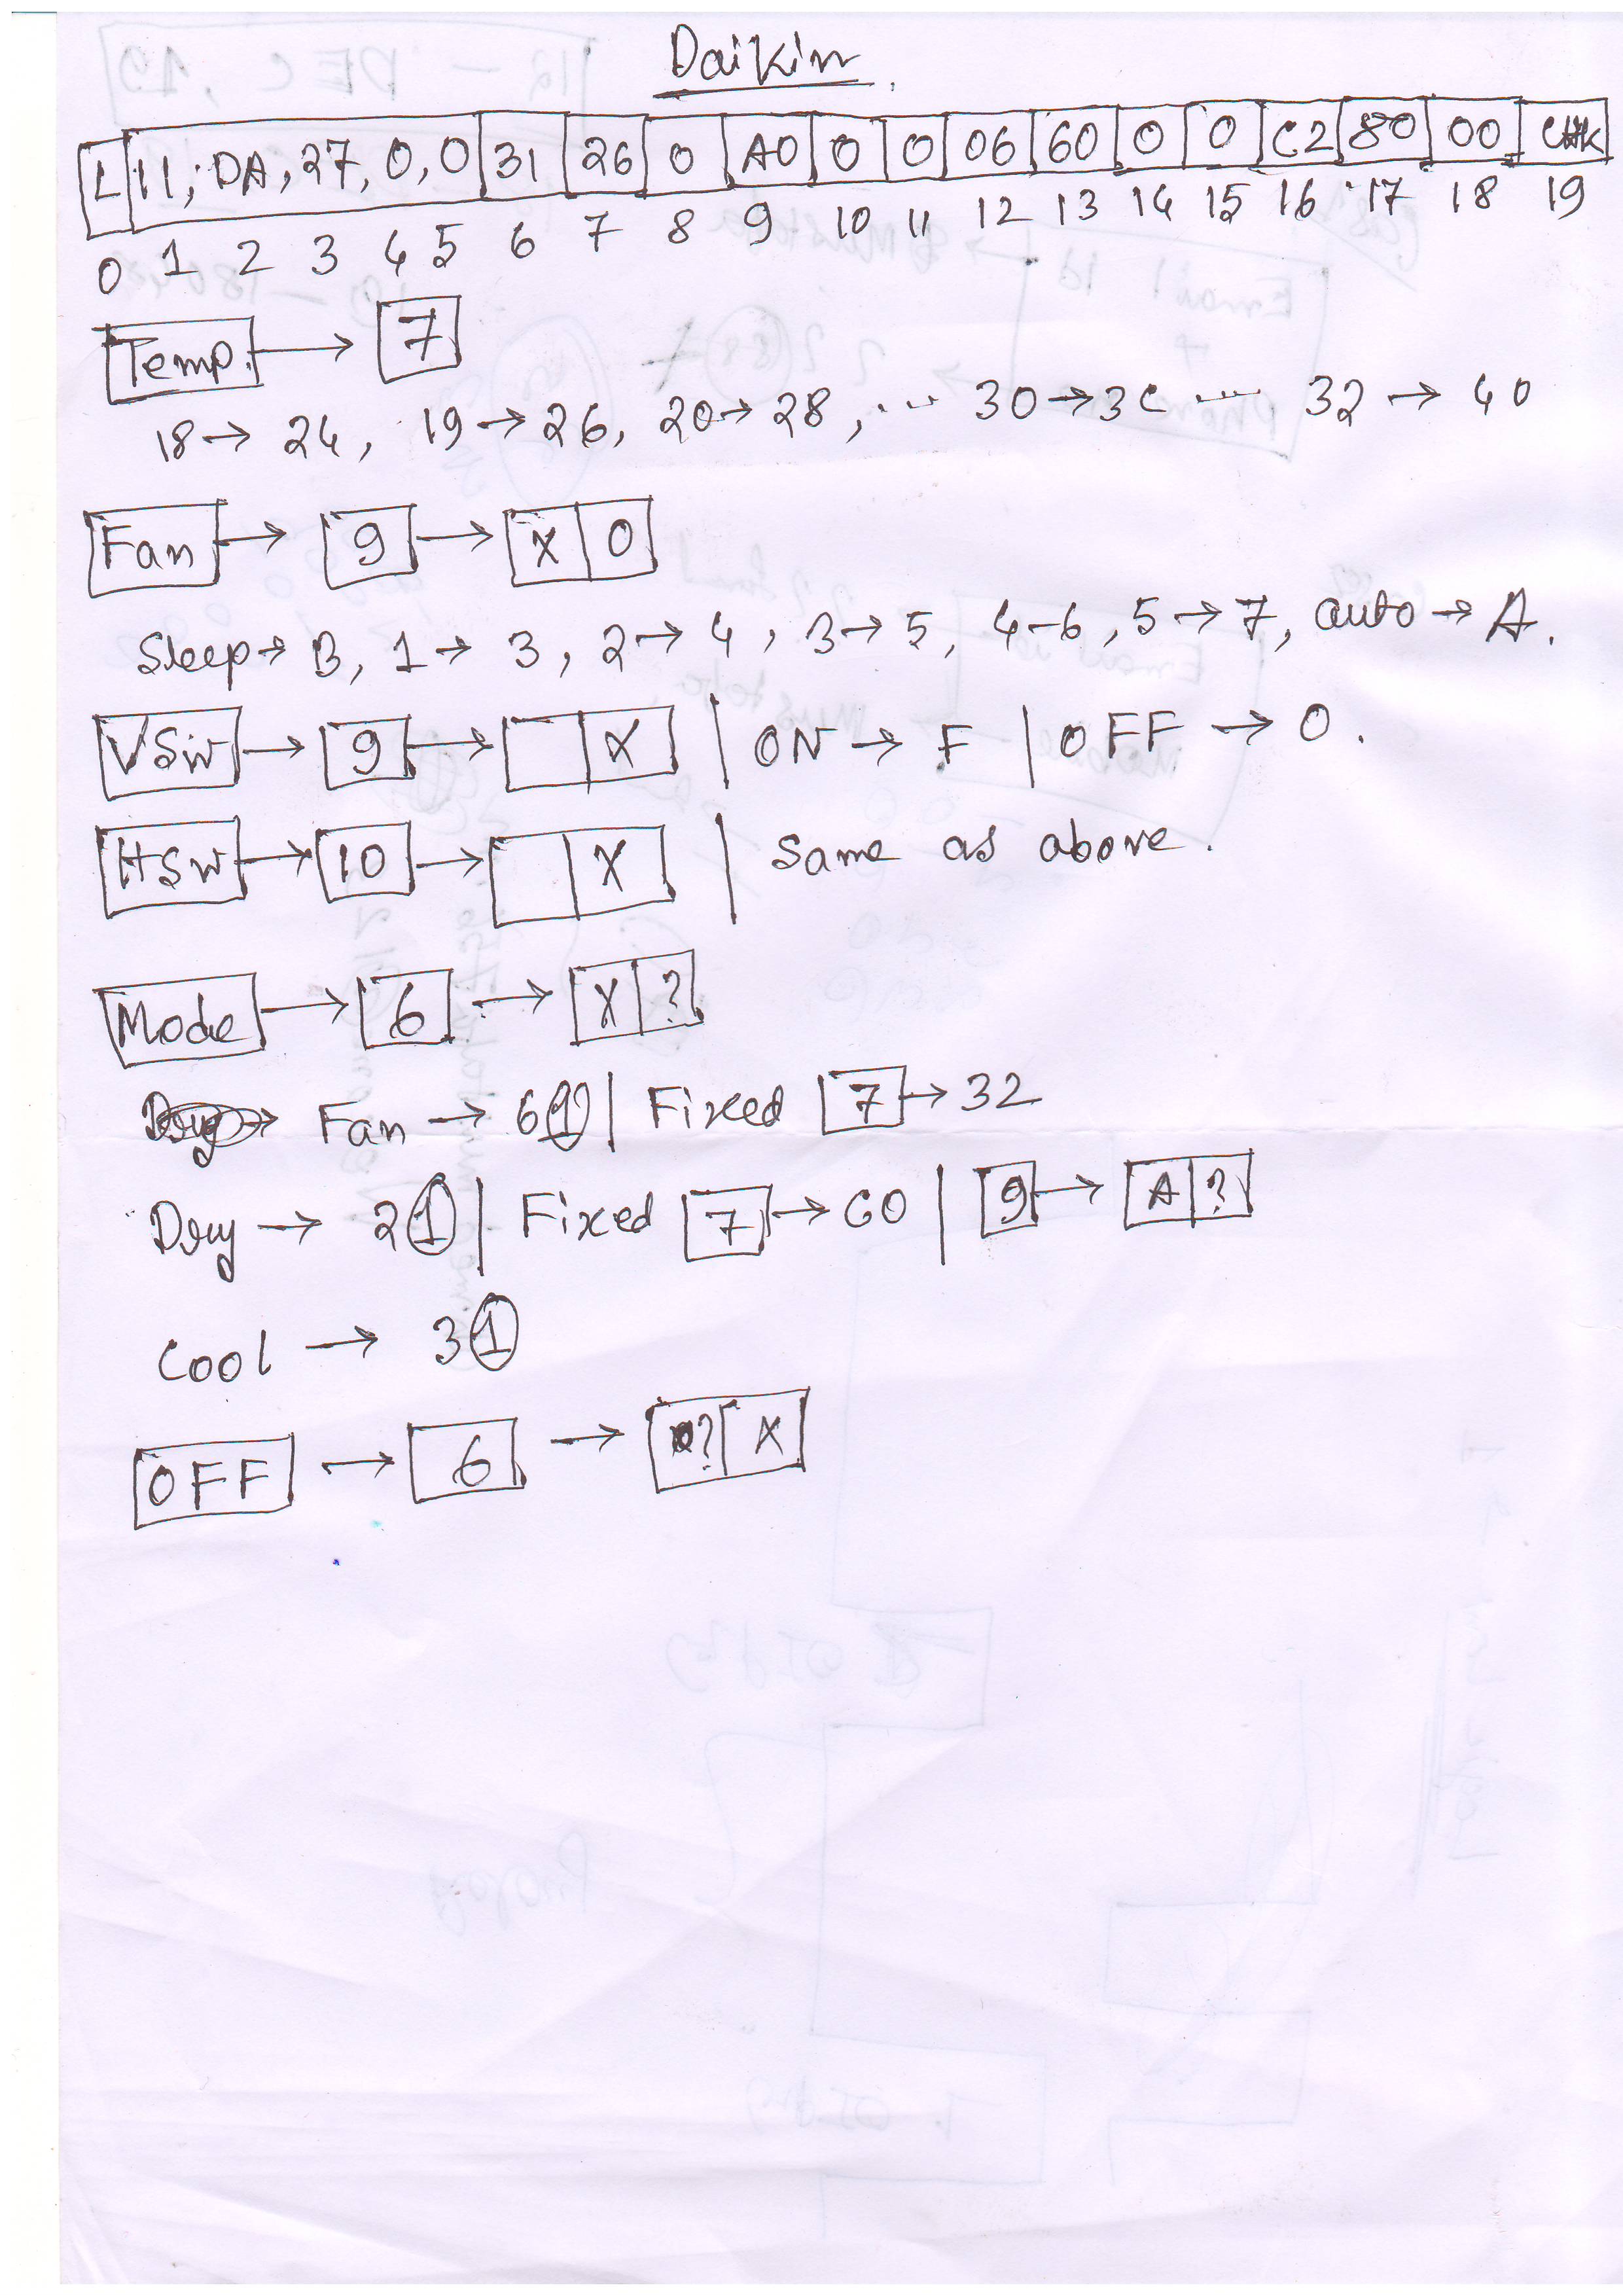 Daikin
L 11, DA, 27, 0, 0 31 26 0 A0 0 0 06 60 0 0 C2 80 00 CHK
0 1 2 3 4 5 6 7 8 9 10 11 12 13 14 15 16 17 18 19
Temp. → 7
18 → 24, 19 → 26, 20 → 28, ... 30 → 3C .... 32 → 40
Fan → 9 → X 0
Sleep → B, 1 → 3, 2 → 4, 3 → 5, 4-6, 5 → 7, auto → A.
VSW → 9 → X | ON → F | OFF → 0.
HSW → 10 → X | Same as above.
Mode → 6 → X ?
Fan → 6 1 | Fixed 7 → 32
Dry → 2 1 | Fixed 7 → C0 | 9 → A ?
Cool → 3 1
OFF → 6 → ? X